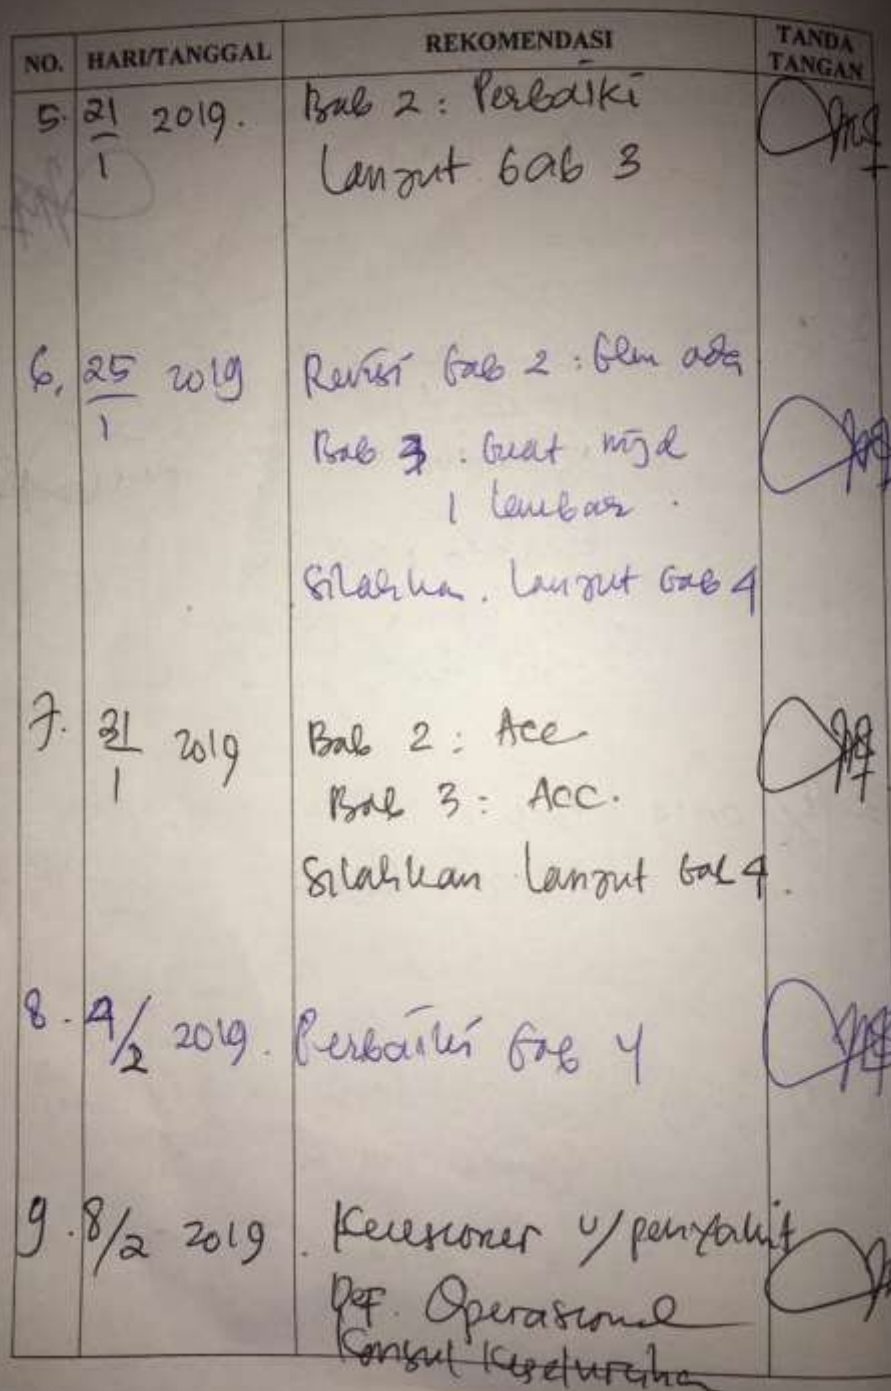 NO. HARI/TANGGAL REKOMENDASI TANDA TANGAN
5. 21/1 2019. Bab 2 : Perbaiki
Lanjut bab 3
6. 25/1 2019 Revisi bab 2 : blm ada
Bab 3 : buat mjd
1 lembar.
Silahkan. Lanjut bab 4
7. 31/1 2019 Bab 2 : Acc
Bab 3 : ACC.
Silahkan lanjut bab 4.
8. 4/2 2019. Perbaiki bab 4
9. 8/2 2019. Kuesioner u/ penyakit
Def. Operasional
Konsul Keseluruhan